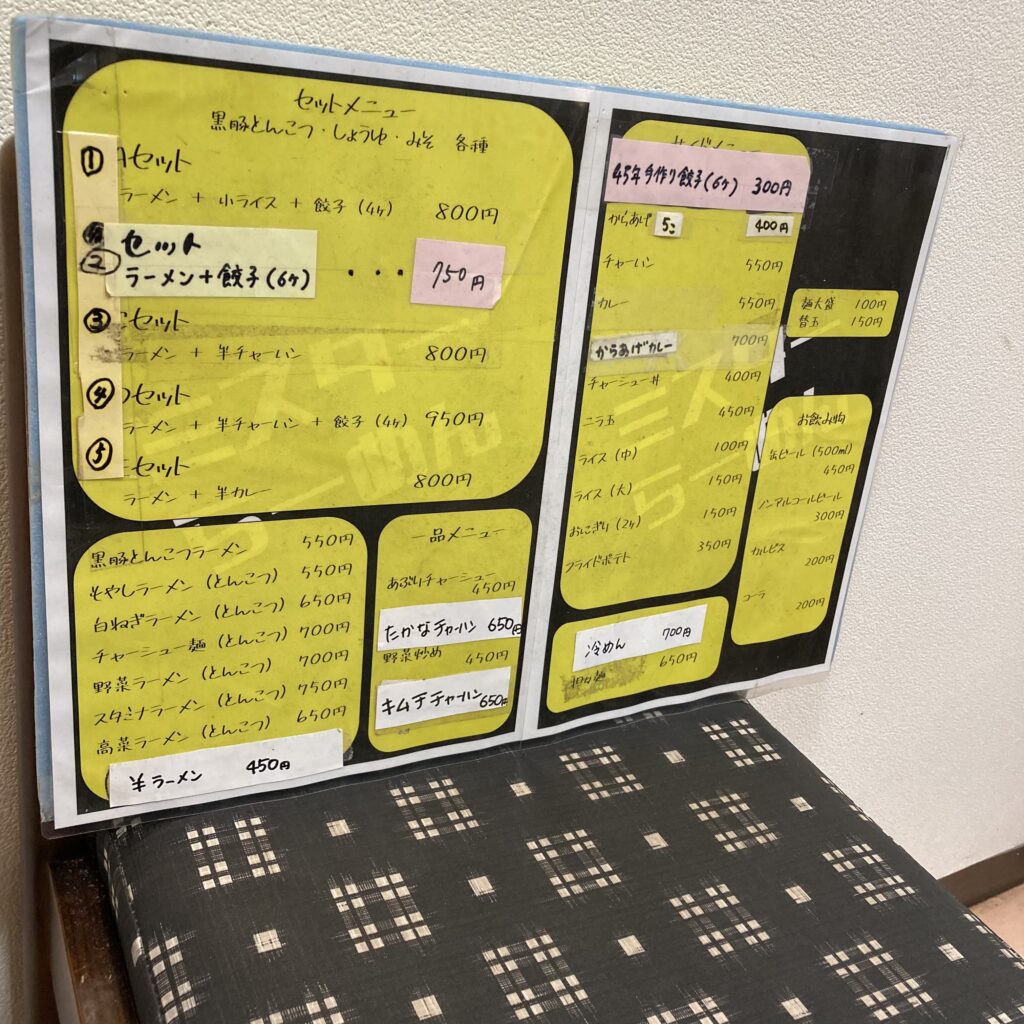 セットメニュー
黒豚とんこつ・しょうゆ・みそ 各種
① Aセット
ラーメン + 小ライス + 餃子(4ヶ) 800円
② セット
ラーメン+餃子(6ヶ) ・・・ 750円
③ セット
ラーメン + 半チャーハン 800円
④ セット
ラーメン + 半チャーハン + 餃子(4ヶ) 950円
⑤ セット
ラーメン + 半カレー 800円
黒豚とんこつラーメン 550円
もやしラーメン(とんこつ) 550円
白ねぎラーメン(とんこつ) 650円
チャーシュー麺(とんこつ) 700円
野菜ラーメン(とんこつ) 700円
スタミナラーメン(とんこつ) 750円
高菜ラーメン(とんこつ) 650円
半ラーメン 450円
一品メニュー
あぶりチャーシュー
450円
たかなチャーハン 650円
野菜炒め 450円
キムチチャーハン 650円
サイドメニュー
45年手作り餃子(6ヶ) 300円
からあげ 5こ 400円
チャーハン 550円
カレー 550円
からあげカレー 700円
チャーシュー丼 400円
ニラ玉 450円
ライス(中) 100円
ライス(大) 150円
おにぎり(2ヶ) 150円
フライドポテト 350円
冷めん 700円
担々麺 650円
麺大盛 100円
替玉 150円
お飲み物
缶ビール(500ml)
450円
ノンアルコールビール
300円
カルピス
200円
コーラ
200円
ミスター
らーめん
ミスター
らーめん